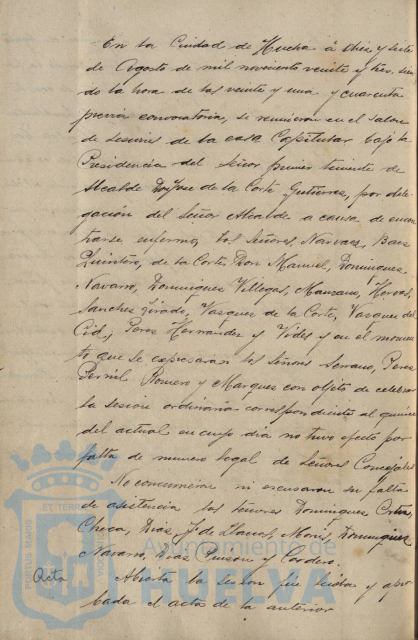 En la Ciudad de Huelva á diez y siete
de Agosto de mil novecientos veinte y tres, sien
do la hora de las veinte y una y cuarenta
previa convocatoria, se reunieron en el Salon
de sesiones de la casa Capitular bajo la
Presidencia del Señor primer teniente de
Alcalde Don Jose de la Corte Gutierrez, por dele-
gación del Señor Alcalde a causa de encon
trarse enfermo, los Señores Narvaez, Baez
Quintero, de la Corte Don Manuel, Dominguez
Navarro, Dominguez Villegas, Manzano,
Sanchez Jurado, Vazquez de la Corte, Vazquez del
Cid, Perez Hernandez y Vides y en el momen
to que se expresaran los Señores Serrano, Perez
Romero y Marquez con objeto de celebrar
la sesion ordinaria correspondiente al quince
del actual en cuyo dia no tuvo efecto por
falta de numero legal de Señores Concejales
No concurrieron ni escusaron su falta
de asistencia los señores Dominguez
Checa, Diaz F. de Llanos, Dominguez
Navarro, Diaz Pinzon y Cordero.
Acta Abierta la sesion fue leida y apro
bada el acta de la anterior
PORTUS MARIS
ET TERR
Ayuntamiento de
HUELVA